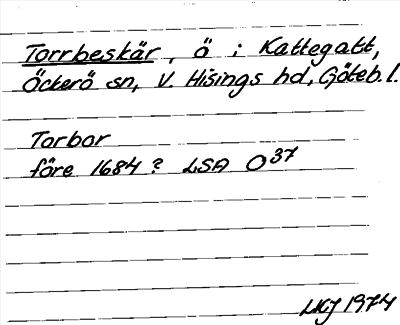 Torrbeskär, ö i Kattegatt,
Öckerö sn, V. Hisings hd, Göteb. l.
Torbor
före 1684? LSA O37
LKJ 1974